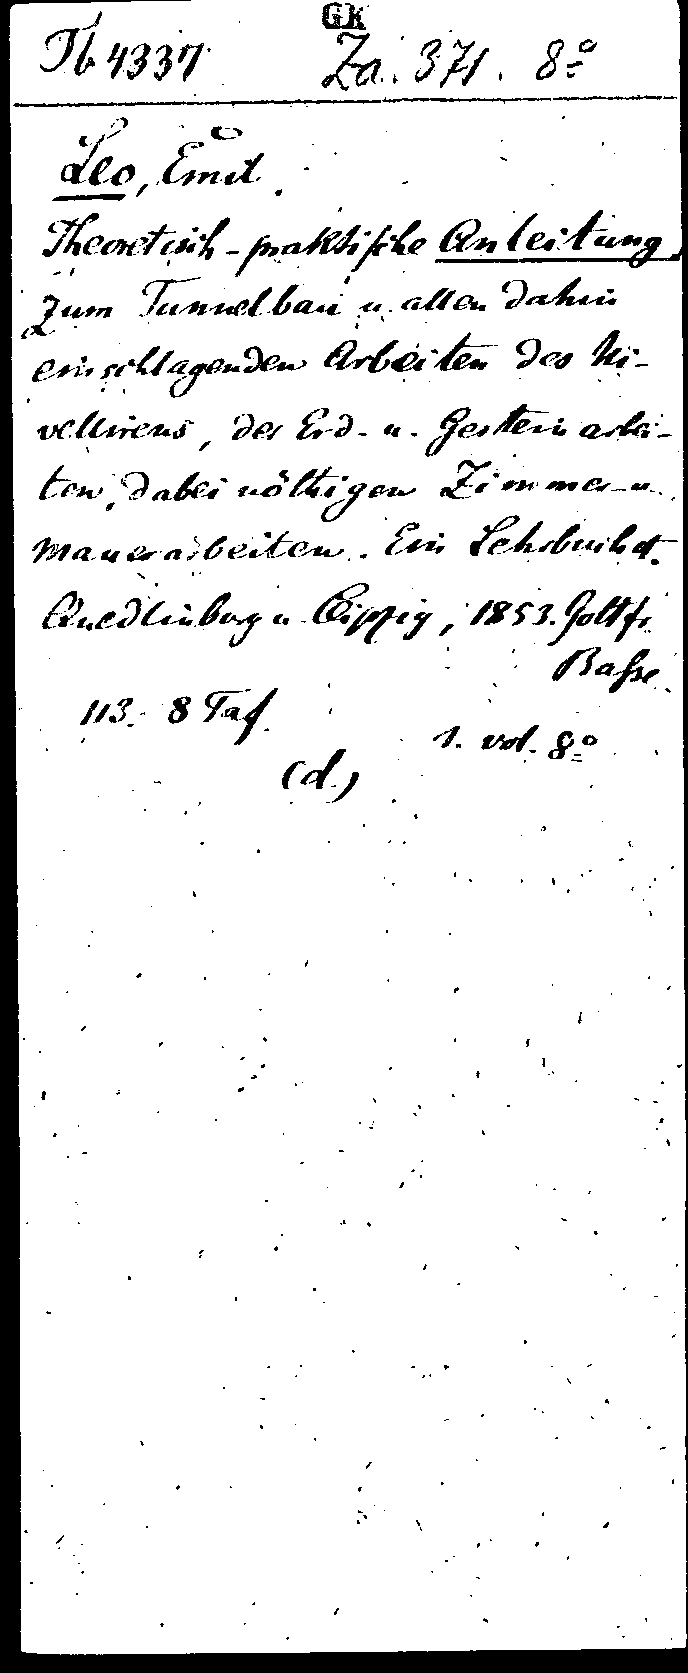 GK
Tb 4337 Za. 371. 8º
Leo, Emil.
Theoretisch-praktische Anleitung
zum Tunnelbau u. allen dahin
einschlagenden Arbeiten des Ni-
vellirens, der Erd- u. Gesteinarbei-
ten, dabei nöthigen Zimmer- u.
Mauerarbeiten. Ein Lehrbuch
Quedlinburg u. Leipzig, 1853. Gottfr.
Basse.
113. 8 Taf. 1. vol. 8º
(d.)